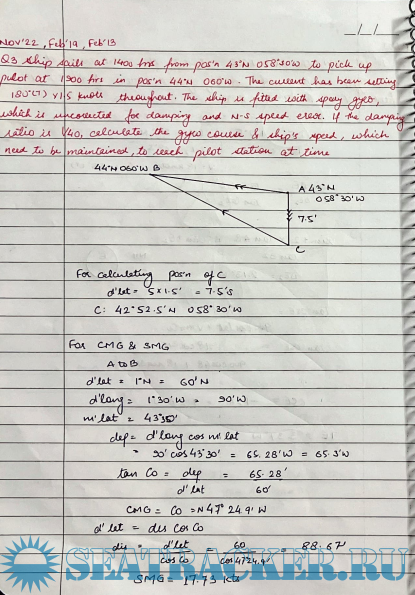 Nov'22, Feb'19, Feb'13
Q3 Ship sails at 1400 hrs from pos'n 43°N 058°30'W to pick up
pilot at 1900 hrs in pos'n 44°N 060°W. The current has been setting
180°(T) x 1.5 knots throughout. The ship is fitted with sperry gyro,
which is uncorrected for damping and N-S speed error. If the damping
ratio is 1/40, calculate the gyro course & ship's speed, which
need to be maintained, to reach pilot station at time
44°N 060°W B
A 43°N
058°30'W
7.5'
C
For calculating pos'n of C
d'lat = 5x1.5' = 7.5'S
C: 42°52.5'N 058°30'W
For CMG & SMG
A to B
d'lat = 1°N = 60'N
d'long = 1°30'W = 90'W
m'lat = 43°30'
dep = d'long cos m'lat
= 90' cos 43°30' = 65.28'W = 65.3'W
tan Co = dep = 65.28'
d'lat 60'
CMG = Co = N47°24.9'W
d'lat = dis cos Co
dis = d'lat = 60 = 88.67'
cos Co cos 47°24.9'
SMG = 17.73 kts
SEATRACKER.RU